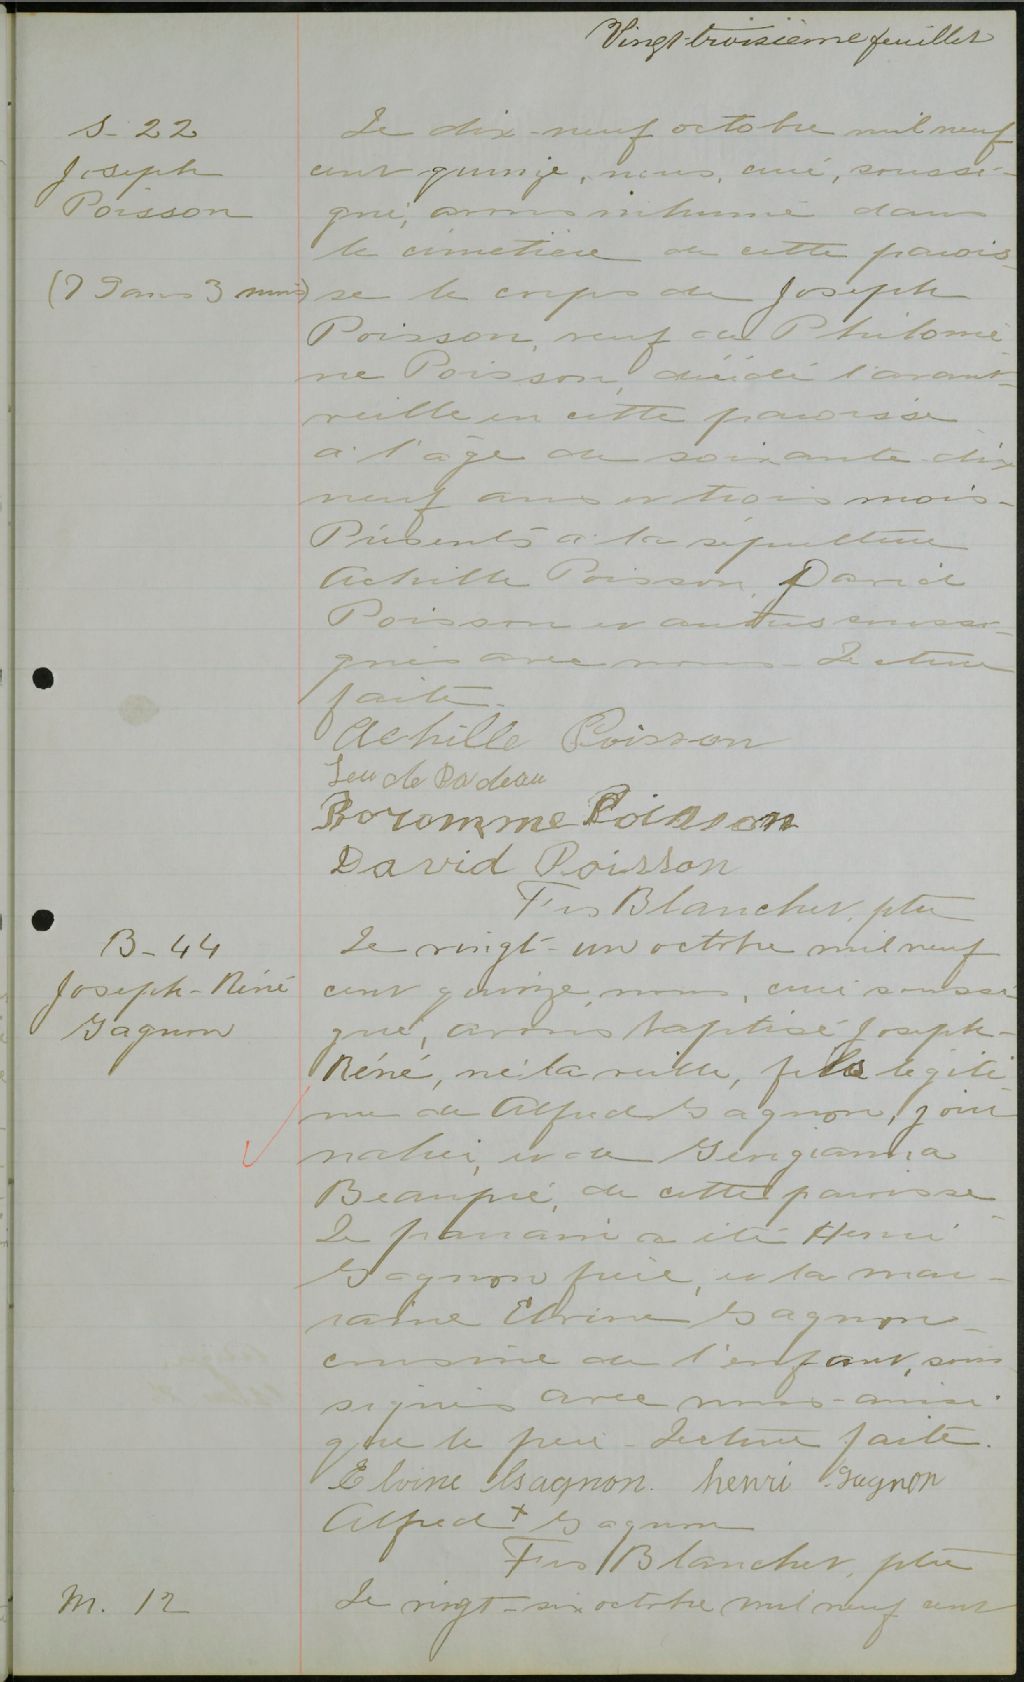 Vingt-troisième feuillet
S- 22
Joseph
Poisson
(79 ans 3 mois)
Le dix-neuf octobre mil neuf
cent quinze, nous, curé, soussi-
gné, avons inhumé dans
le cimetière de cette parois-
se le corps de Joseph
Poisson, veuf de Philomè
ne Poisson, décédé l'avant-
veille en cette paroisse
à l'âge de soixante-dix
neuf ans et trois mois-
Présents à la sépulture
Achille Poisson, David
Poisson et autres soussi-
gnés avec nous- Lecture
faite-
Achille Poisson
Nadeau
Boromme Poisson
David Poisson
Frs Blanchet, ptre
B- 44
Joseph-Réné
Gagnon
Le vingt-un octobre mil neuf
cent quinze, nous, curé soussi
gné, avons baptisé Joseph-
Réné, né la veille, fils légiti
me de Alfred Gagnon, jour
nalier, et de Georgianna
Beaupré, de cette paroisse
Le parrain a été Henri
Gagnon frère, et la mar-
raine Elvine Gagnon-
cousine de l'enfant, sous-
signés avec nous- ainsi
que le père- Lecture faite.
Elvine Gagnon. henri Gagnon
Alfred + Gagnon
Frs Blanchet, ptre
M. 12
Le vingt-six octobre mil neuf cent